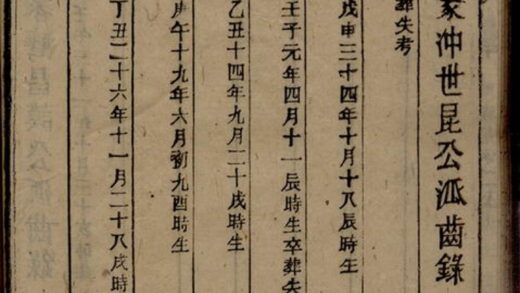 家沖世昆公派齒錄
葬失考
戊申三十四年十月十八辰時生
壬子元年四月十一辰時生卒葬失
乙丑十四年九月二十戌時生
庚午十九年六月初九酉時生
丁丑二十六年十一月二十八戌時